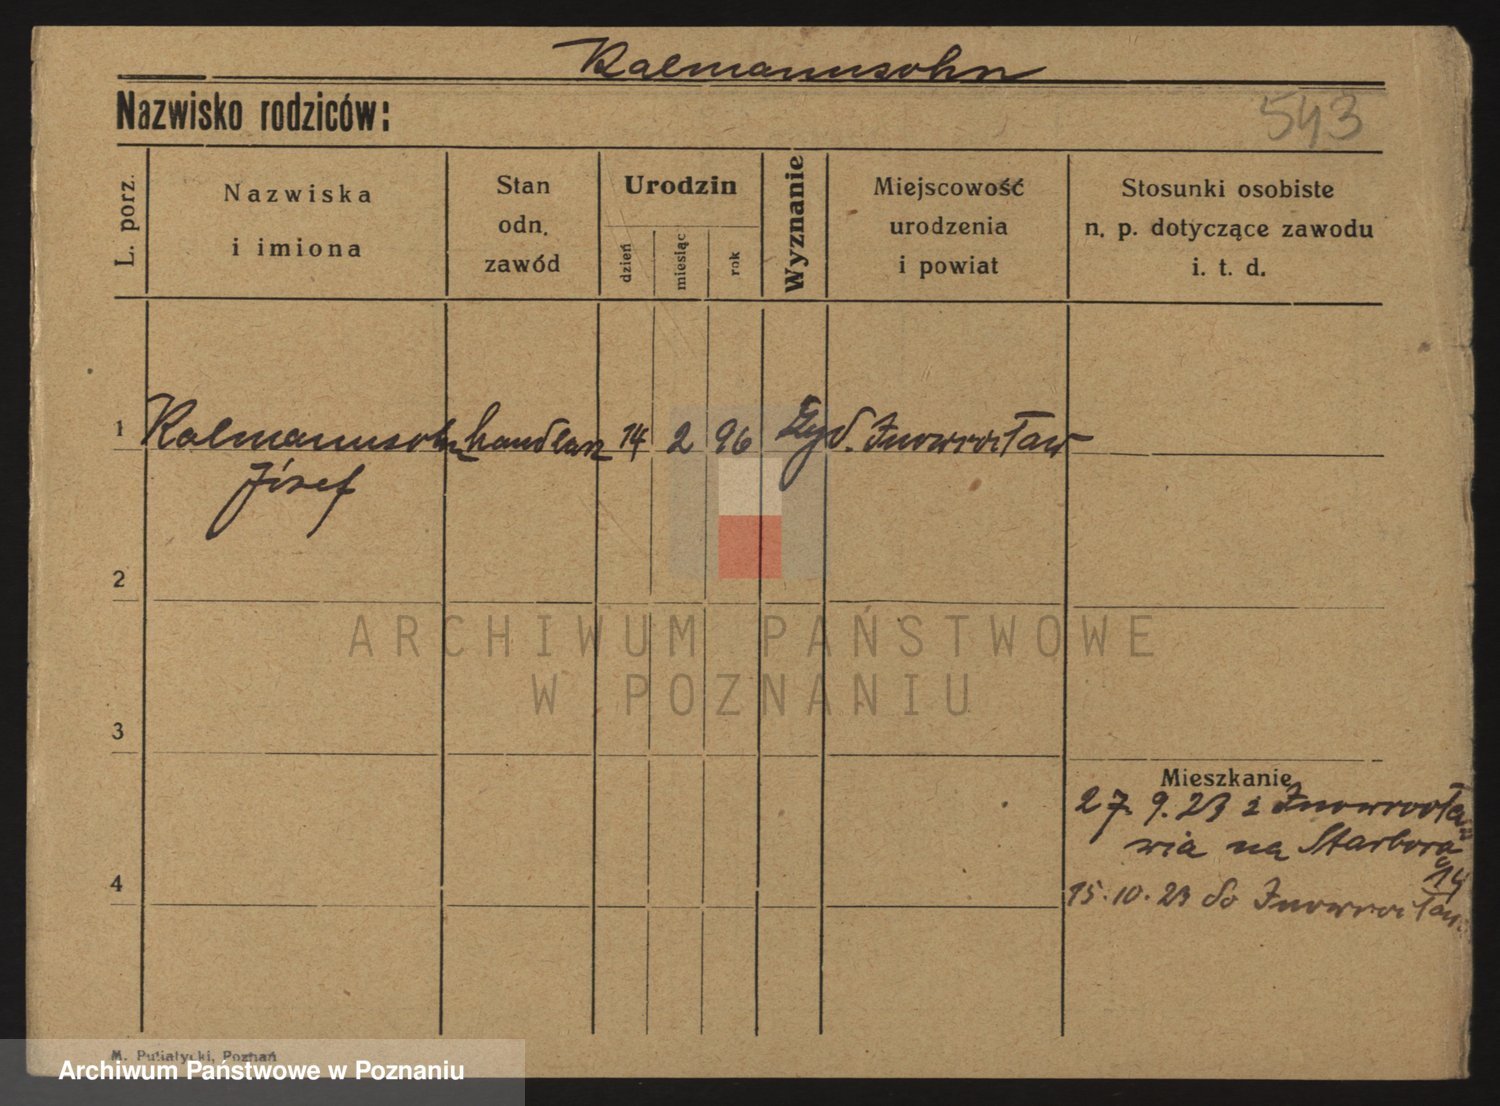 Kalmannsohn
Nazwisko rodziców:
543
L. porz.
Nazwiska
i imiona
Stan
odn.
zawód
Urodzin
dzień
miesiąc
rok
Wyznanie
Miejscowość
urodzenia
i powiat
Stosunki osobiste
n. p. dotyczące zawodu
i. t. d.
1 Kalmannsohn handlarz 14 2 96 Żyd. Inowrocław
Józef
2
ARCHIWUM PAŃSTWOWE
W POZNANIU
3
Mieszkanie
27. 9. 23 z Inowrocła-
wia na
14
4
15. 10. 23 do Inowrocław.
M. Putiatycki, Poznań
Archiwum Państwowe w Poznaniu